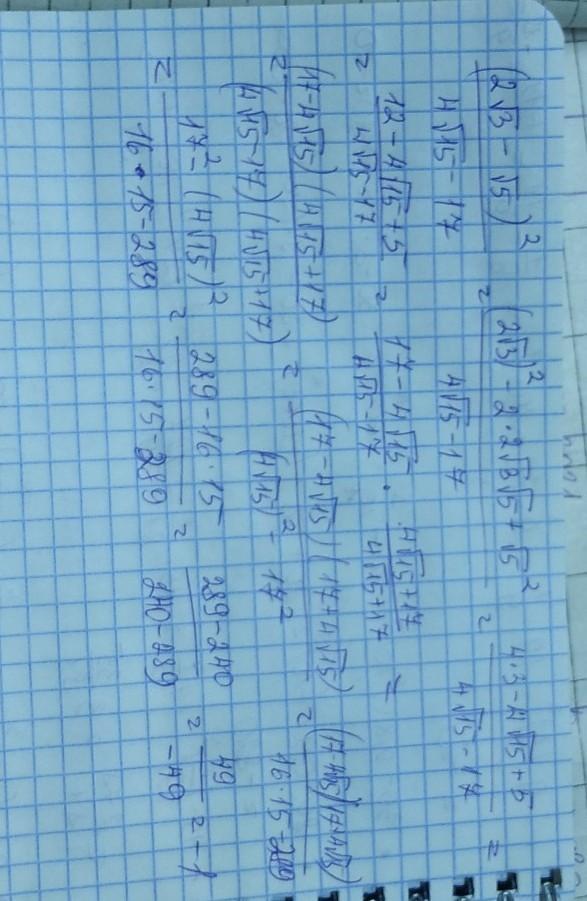 (2√3 - √5)² / (4√15 - 17) = ((2√3)² - 2·2√3√5 + √5²) / (4√15 - 17) = (4·3 - 4√15 + 5) / (4√15 - 17) =
= (12 - 4√15 + 5) / (4√15 - 17) = (17 - 4√15) / (4√15 - 17) · (4√15 + 17) / (4√15 + 17) =
= (17 - 4√15)(4√15 + 17) / (4√15 - 17)(4√15 + 17) = (17 - 4√15)(17 + 4√15) / ((4√15)² - 17²) = (17-4√15)(17+4√15) / (16·15 - 289)
= (17² - (4√15)²) / (16·15 - 289) = (289 - 16·15) / (16·15 - 289) = (289 - 240) / (240 - 289) = 49 / -49 = -1